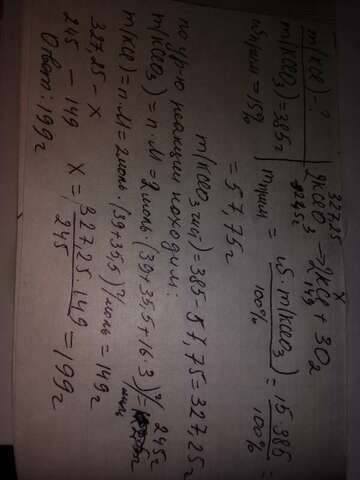 m(KCl) - ?
m(KClO₃) = 385г
ωприм = 15%
327,25 x
2KClO₃ → 2KCl + 3O₂
245г 149
mприм = ω · m(KClO₃) / 100% = 15 · 385 / 100% =
= 57,75г
m(KClO₃ чист) = 385 - 57,75 = 327,25г
по ур-ю реакции находим:
m(KClO₃) = n · M = 2моль · (39+35,5+16·3) г/моль = 245г
m(KCl) = n · M = 2моль · (39+35,5) г/моль = 149г
327,25 - x
245 - 149 x = 327,25 · 149 / 245 = 199г
Ответ: 199г